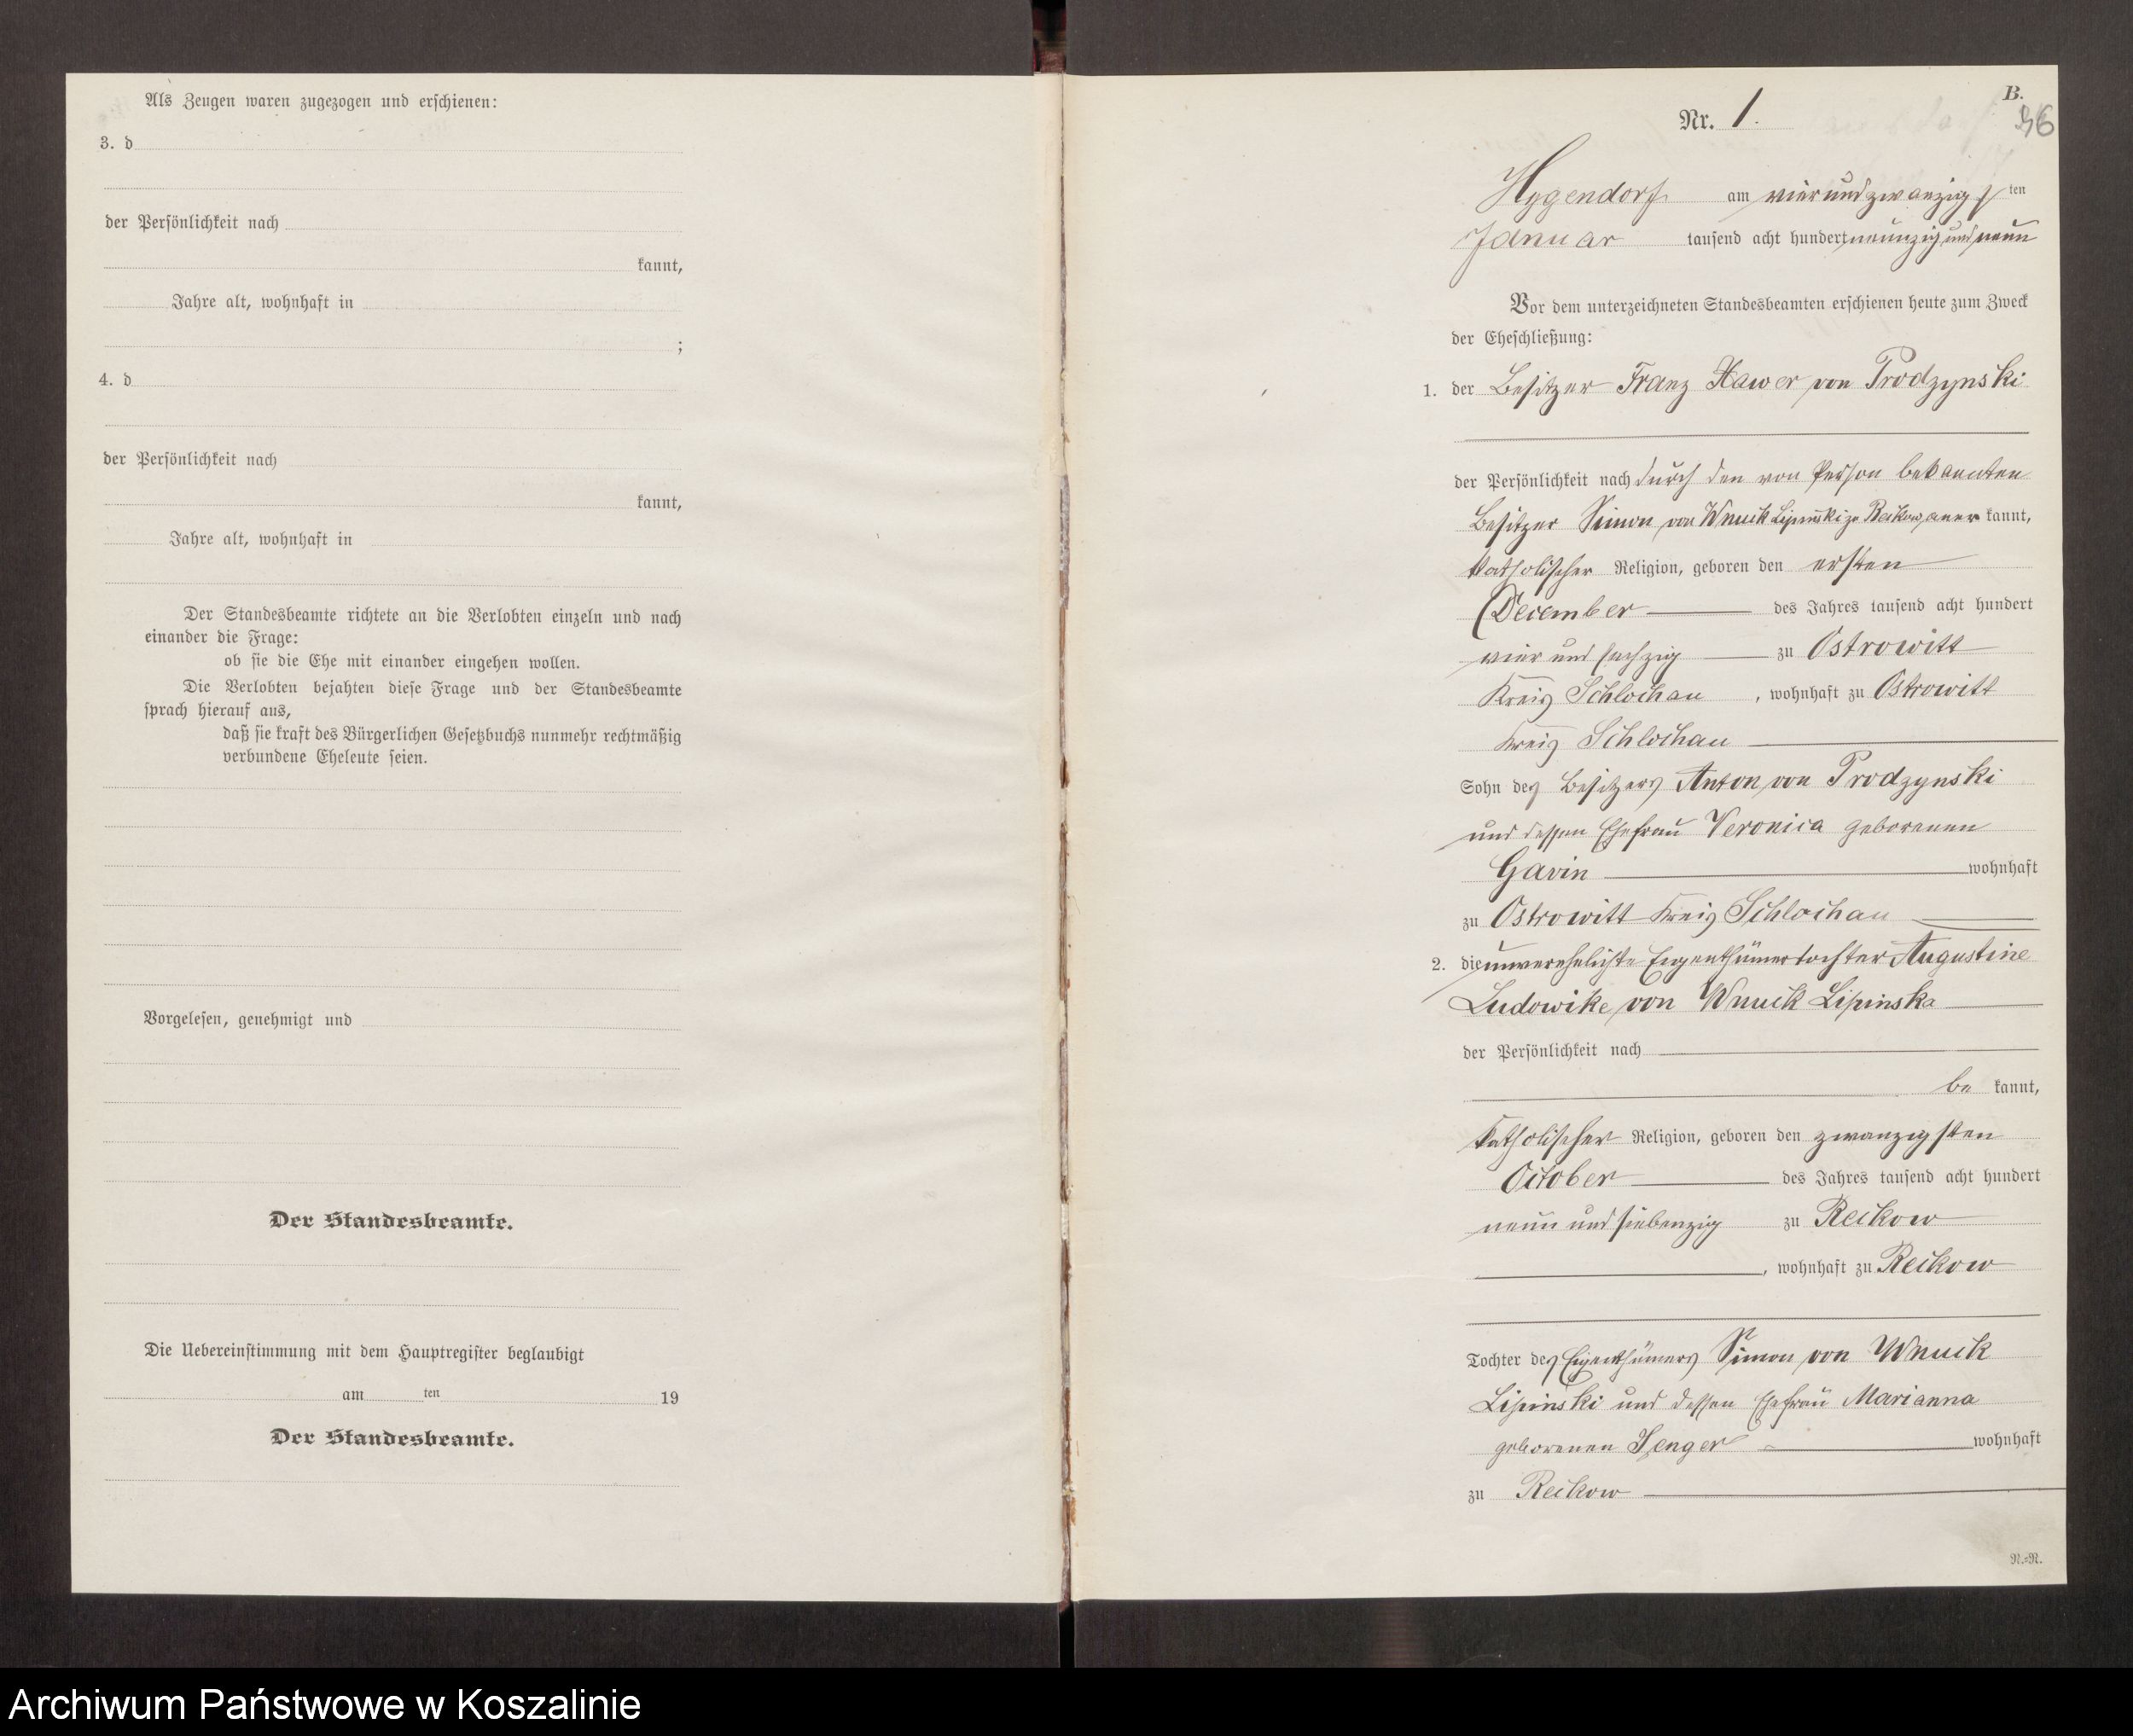 Als Zeugen waren zugezogen und erschienen:
3. d
der Persönlichkeit nach
kannt,
Jahre alt, wohnhaft in
;
4. d
der Persönlichkeit nach
kannt,
Jahre alt, wohnhaft in
Der Standesbeamte richtete an die Verlobten einzeln und nach
einander die Frage:
ob sie die Ehe mit einander eingehen wollen.
Die Verlobten bejahten diese Frage und der Standesbeamte
sprach hierauf aus,
daß sie kraft des Bürgerlichen Gesetzbuchs nunmehr rechtmäßig
verbundene Eheleute seien.
Vorgelesen, genehmigt und
Der Standesbeamte.
Die Uebereinstimmung mit dem Hauptregister beglaubigt
am ten 19
Der Standesbeamte.
B.
Nr. 1.
36
Hygendorf am vierundzwanzigsten
Januar tausend acht hundert neunzig und neun
Vor dem unterzeichneten Standesbeamten erschienen heute zum Zweck
der Eheschließung:
1. der Besitzer Franz Xawer von Prodzynski
der Persönlichkeit nach durch den von Person bekannten
Besitzer Simon von Wnuck Lipinski zu Reckow aner kannt,
katholischer Religion, geboren den ersten
December des Jahres tausend acht hundert
vier und sechzig zu Ostrowitt
Kreis Schlochau, wohnhaft zu Ostrowitt
Kreis Schlochau
Sohn des Besitzers Anton von Prodzynski
und dessen Ehefrau Veronica geborenen
Gavin wohnhaft
zu Ostrowitt Kreis Schlochau
2. die unverehelichte Eigenthümertochter Augustine
Ludowike von Wnuck Lipinska
der Persönlichkeit nach
be kannt,
katholischer Religion, geboren den zwanzigsten
October des Jahres tausend acht hundert
neun und siebenzig zu Reckow
, wohnhaft zu Reckow
Tochter des Eigenthümers Simon von Wnuck
Lipinski und dessen Ehefrau Marianna
geborenen wohnhaft
zu Reckow
N.=N.
Archiwum Państwowe w Koszalinie